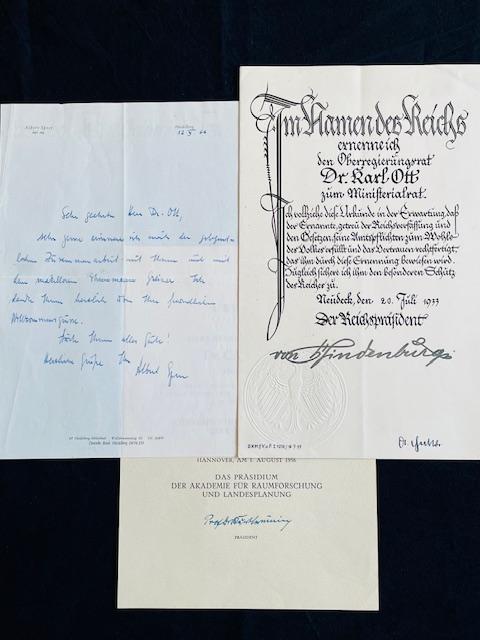 Albert Speer
Heidelberg
Sehr geehrter Herr Dr. Ott,
sehr gerne erinnere ich mich der
Zusammenarbeit mit Ihnen und mit
dem
Ihnen herzlich
Willkommensgrüsse.
Ihnen alles Gute!
Grüße Ihr
Albert Speer
Im Namen des Reichs
ernenne ich
den Oberregierungsrat
Dr. Karl Ott
zum Ministerialrat.
Ich vollziehe diese Urkunde in der Erwartung, daß
der Ernannte, getreu der Reichsverfassung und
den Gesetzen, seine Amtspflichten zum Wohle
des Volkes erfüllt und das Vertrauen rechtfertigt,
das ihm durch diese Ernennung bewiesen wird.
Zugleich sichere ich ihm den besonderen Schutz
des Reiches zu.
Neudeck, den 20. Juli 1933
Der Reichspräsident
von Hindenburg
HANNOVER, AM 1. AUGUST 1956
DAS PRÄSIDIUM
DER AKADEMIE FÜR RAUMFORSCHUNG
UND LANDESPLANUNG
PRÄSIDENT